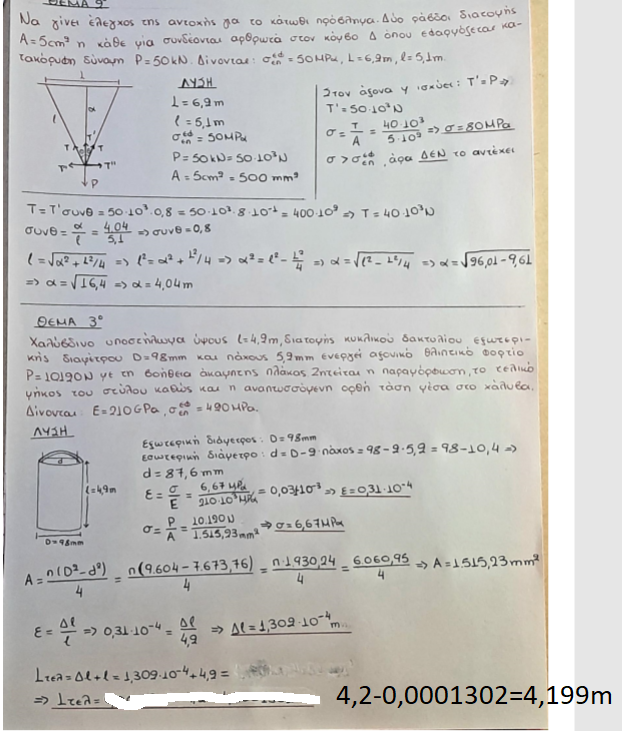 ΘΕΜΑ 2°
Να γίνει έλεγχος της αντοχής για το κάτωθι πρόβλημα. Δύο ράβδοι διατομής
A=5cm² η κάθε μία συνδέονται αρθρωτά στον κόμβο Δ όπου εφαρμόζεται κα-
τακόρυφη δύναμη P=50kN. Δίνονται: σεπ^εφ=50MPa, L=6,2m, l=5,1m.
ΛΥΣΗ
L=6,2m
l=5,1m
σεπ^εφ=50MPa
P=50kN=50·10³N
A=5cm²=500mm²
Στον άξονα y ισχύει: T'=P⇒
T'=50·10³N
σ=T/A=40·10³/5·10²⇒σ=80MPa
σ>σεπ^εφ, άρα ΔΕΝ το αντέχει
L
l
α
T'
T
T
T"
T"
P
T=T'συνθ=50·10³·0,8=50·10³·8·10⁻¹=400·10²⇒T=40·10³N
συνθ=α/l=4,04/5,1⇒συνθ=0,8
l=√α²+L²/4⇒l²=α²+L²/4⇒α²=l²-L²/4⇒α=√l²-L²/4⇒α=√26,01-9,61
⇒α=√16,4⇒α=4,04m
ΘΕΜΑ 3°
Χαλύβδινο υποστήλωμα ύψους l=4,2m, διατομής κυκλικού δακτυλίου εξωτερι-
κής διαμέτρου D=98mm και πάχους 5,2mm ενεργεί αξονικό θλιπτικό φορτίο
P=10190N με τη βοήθεια άκαμπτης πλάκας. Ζητείται η παραμόρφωση, το τελικό
μήκος του στύλου καθώς και η αναπτυσσόμενη ορθή τάση μέσα στο χάλυβα.
Δίνονται: E=210GPa, σεπ^εφ=420MPa.
ΛΥΣΗ
d
l=4,2m
D=98mm
Εξωτερική διάμετρος: D=98mm
Εσωτερική διάμετρο: d=D-2·πάχος=98-2·5,2=98-10,4⇒
d=87,6mm
ε=σ/E=6,67MPa/210·10³MPa=0,031·10⁻³⇒ε=0,31·10⁻⁴
σ=P/A=10.190N/1.515,23mm²⇒σ=6,67MPa
A=π(D²-d²)/4=π(9.604-7.673,76)/4=π·1930,24/4=6.060,95/4⇒A=1.515,23mm²
ε=Δl/l⇒0,31·10⁻⁴=Δl/4,2⇒Δl=1,302·10⁻⁴m
Lτελ=Δl+l=1,302·10⁻⁴+4,2=
⇒Lτελ= 4,2-0,0001302=4,199m